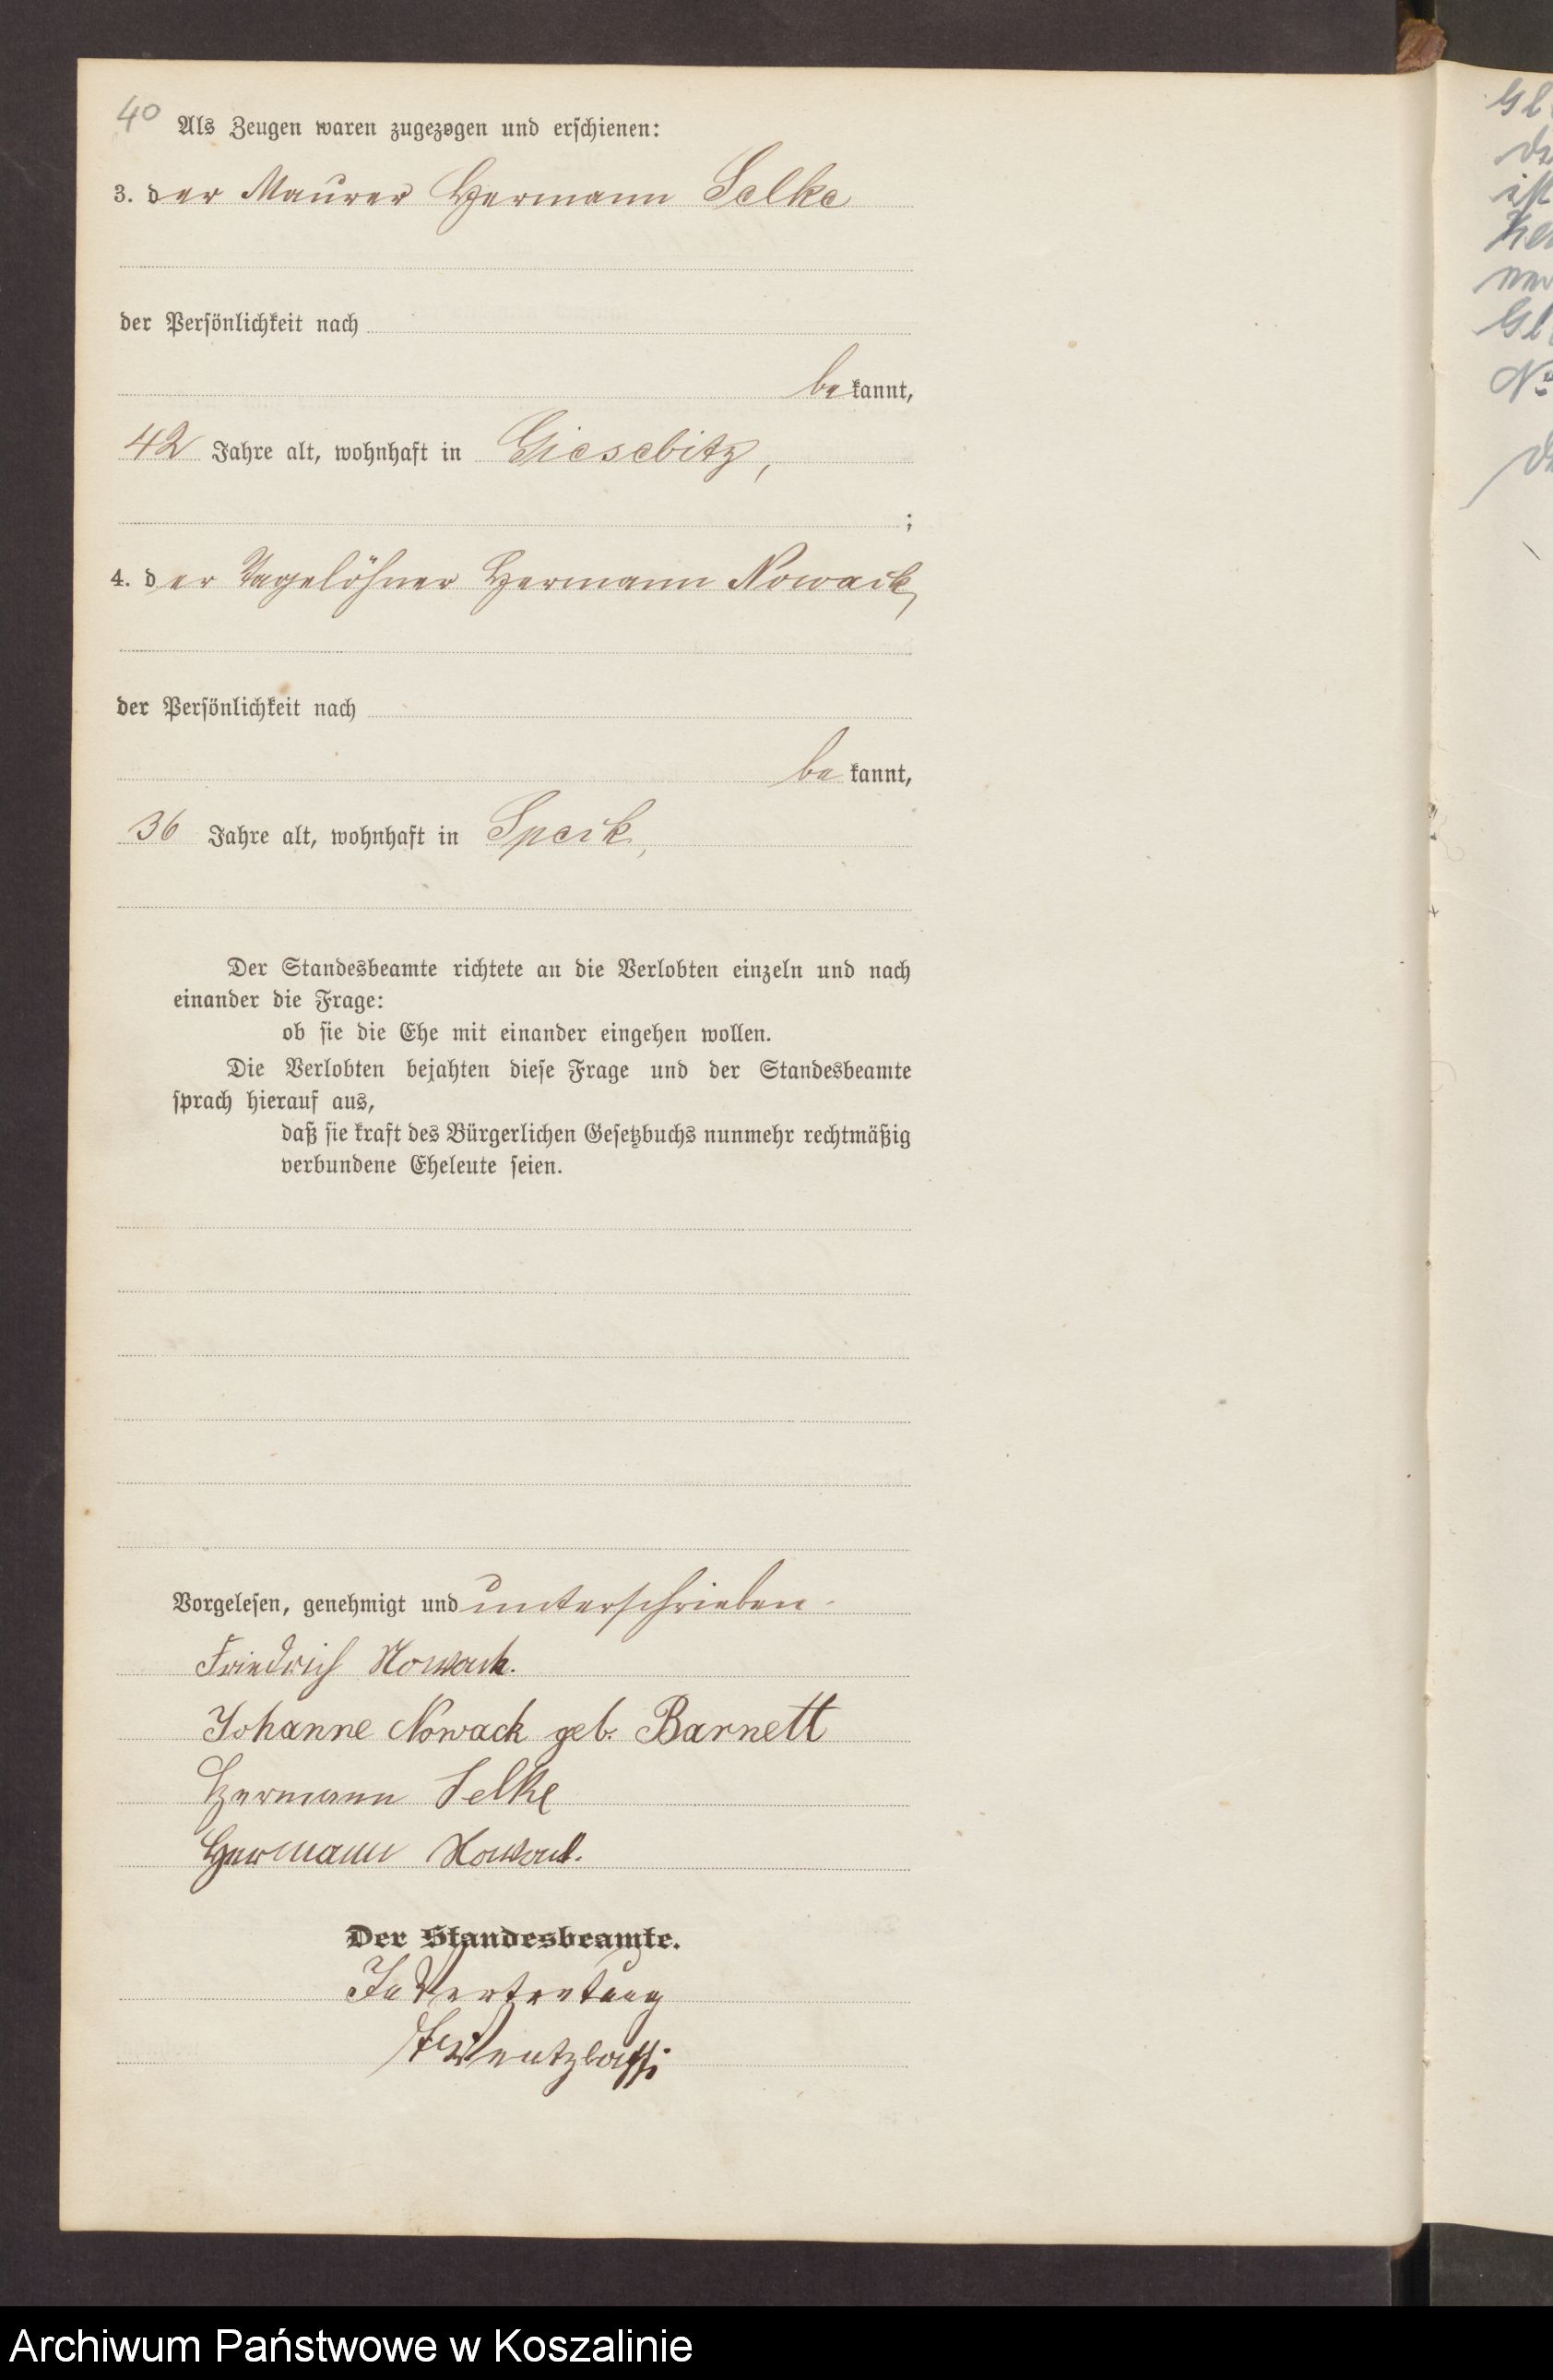 40
Als Zeugen waren zugezogen und erschienen:
3. der Maurer Hermann Selke
der Persönlichkeit nach
be kannt,
42 Jahre alt, wohnhaft in Giesebitz,
;
4. der Tagelöhner Hermann Nowack,
der Persönlichkeit nach
be kannt,
36 Jahre alt, wohnhaft in Speck,
Der Standesbeamte richtete an die Verlobten einzeln und nach
einander die Frage:
ob sie die Ehe mit einander eingehen wollen.
Die Verlobten bejahten diese Frage und der Standesbeamte
sprach hierauf aus,
daß sie kraft des Bürgerlichen Gesetzbuchs nunmehr rechtmäßig
verbundene Eheleute seien.
Vorgelesen, genehmigt und unterschrieben.
Friedrich Nowack.
Johanne Nowack geb. Barnett
Hermann Selke
Hermann Nowack.
Der Standesbeamte.
In Vertretung
Archiwum Państwowe w Koszalinie